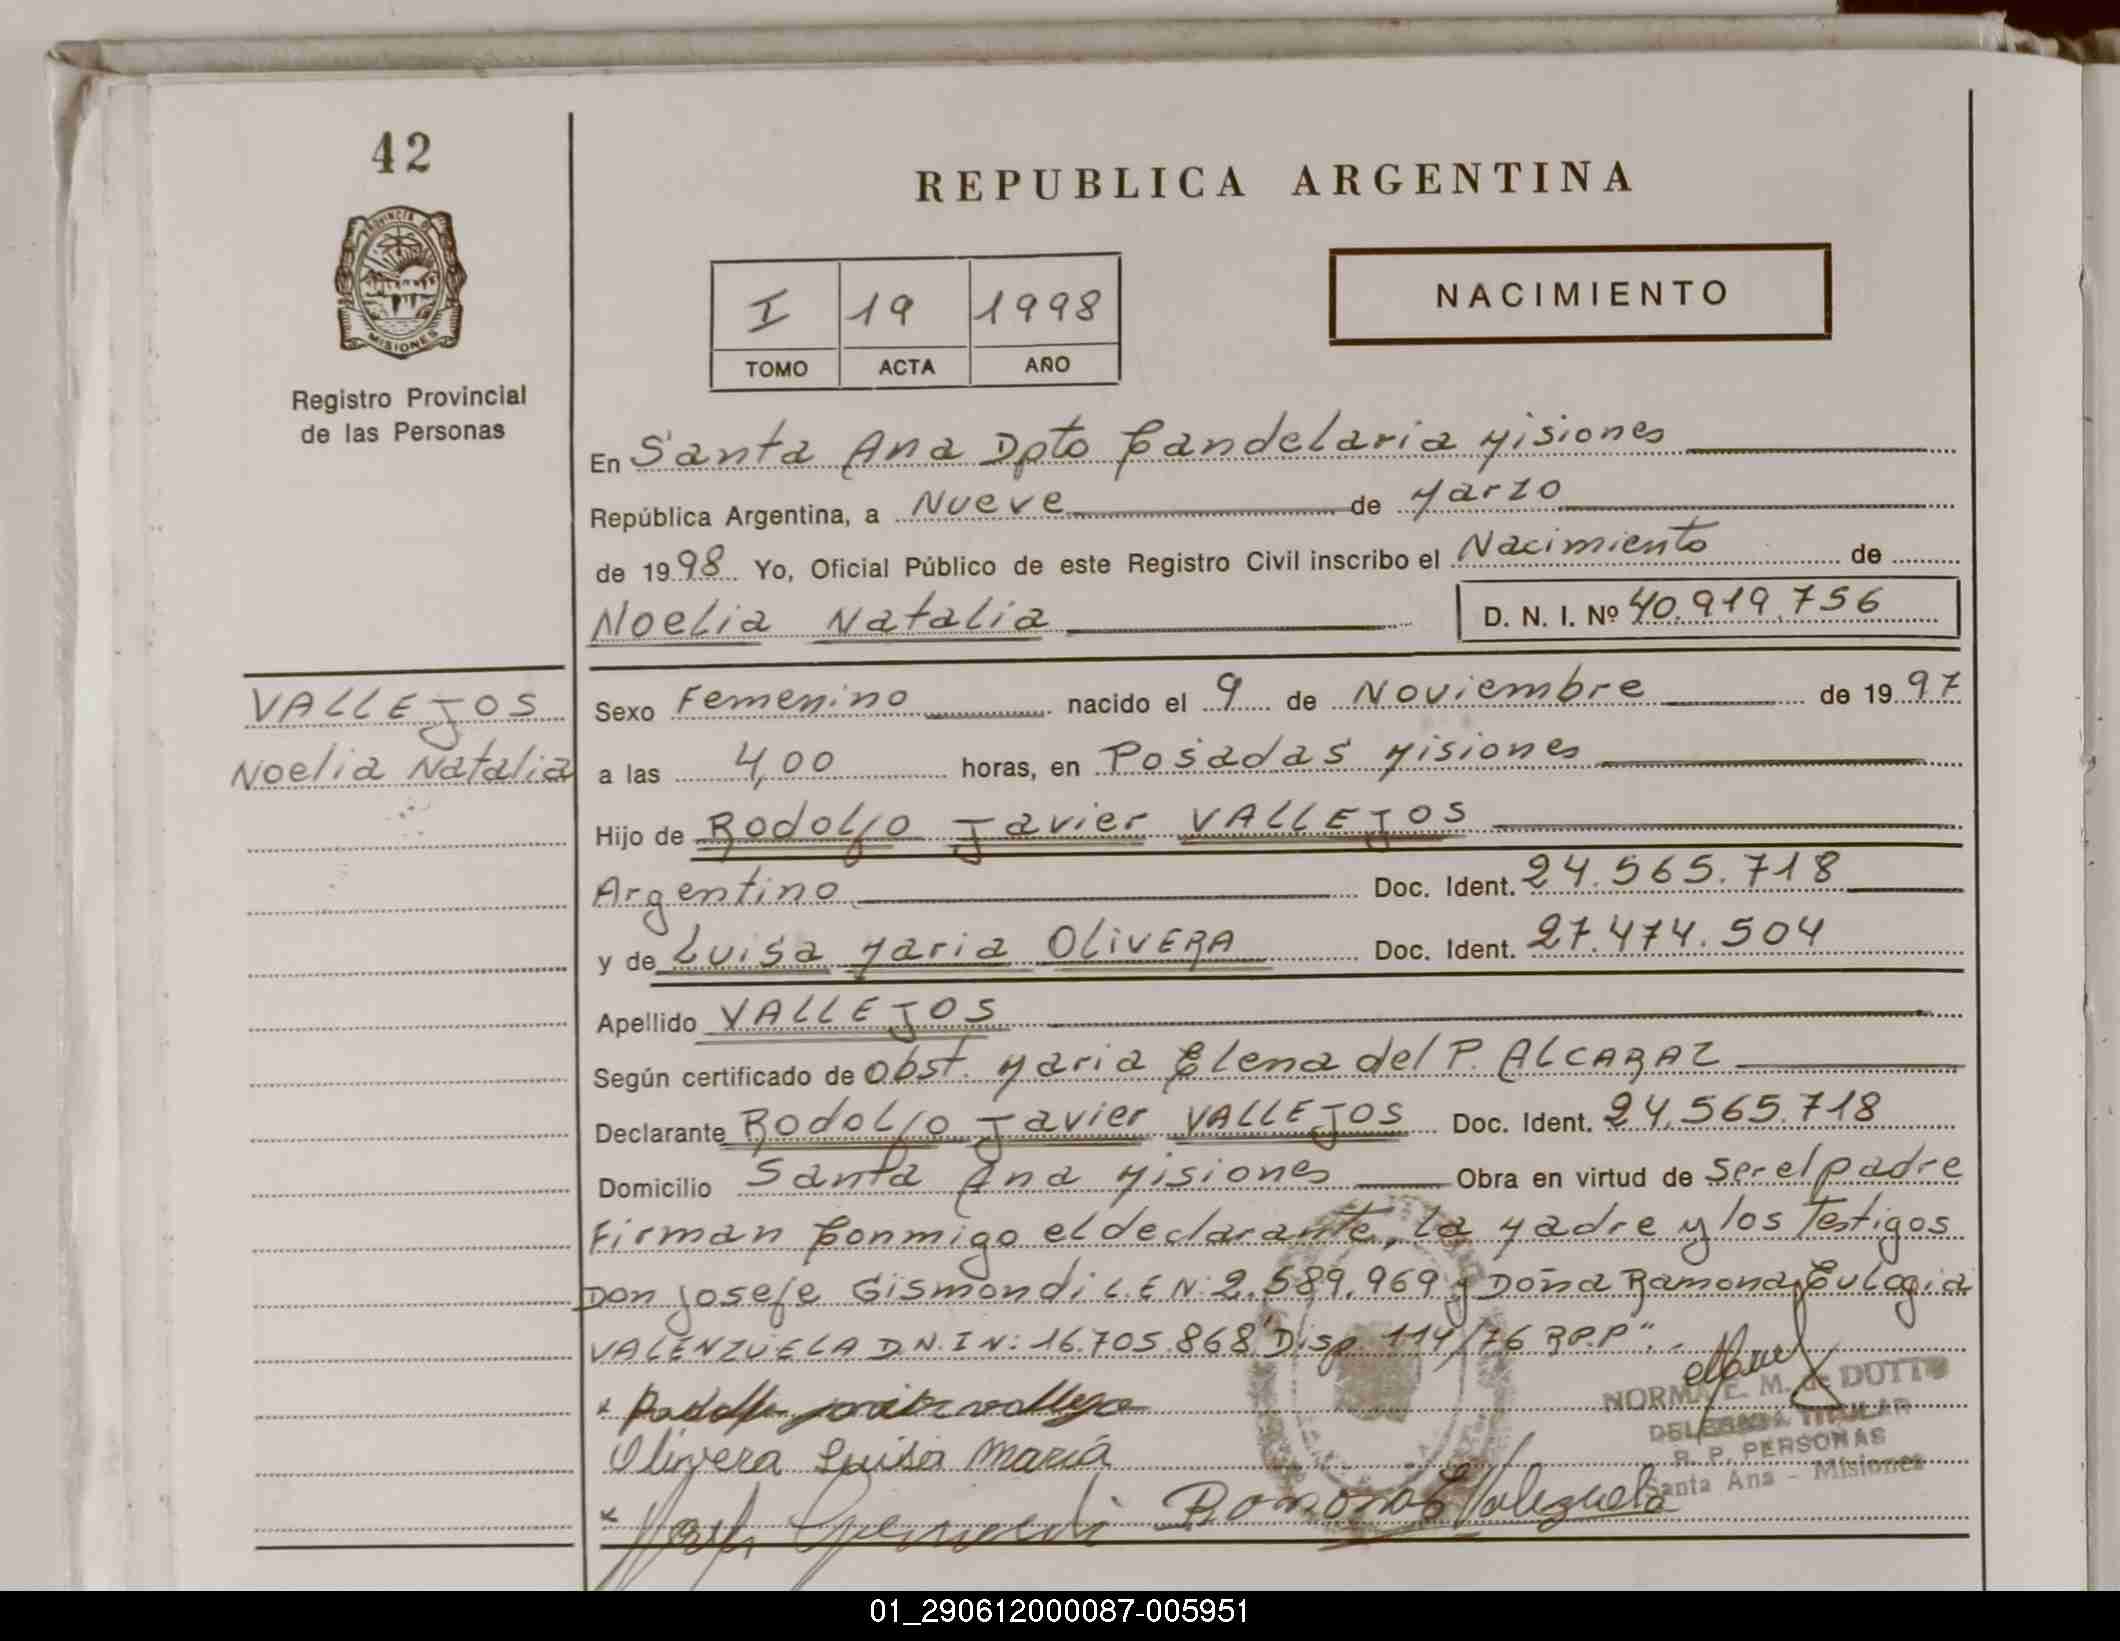 42
REPUBLICA ARGENTINA
PROVINCIA DE
MISIONES
Registro Provincial
de las Personas
I 19 1998
TOMO ACTA AÑO
NACIMIENTO
En Santa Ana Dpto Candelaria Misiones
República Argentina, a Nueve de Marzo
de 1998 Yo, Oficial Público de este Registro Civil inscribo el Nacimiento de
Noelia Natalia D. N. I. Nº 40.919.756
VALLEJOS
Noelia Natalia
Sexo Femenino nacido el 9 de Noviembre de 1997
a las 4,00 horas, en Posadas Misiones
Hijo de Rodolfo Javier VALLEJOS
Argentino Doc. Ident. 24.565.718
y de Luisa Maria OLIVERA Doc. Ident. 27.474.504
Apellido VALLEJOS
Según certificado de Obst. Maria Elena del P. ALCARAZ
Declarante Rodolfo Javier VALLEJOS Doc. Ident. 24.565.718
Domicilio Santa Ana Misiones Obra en virtud de Ser el padre
Firman Conmigo el declarante, la Madre y los Testigos
Don Josefe Gismondi L.E N: 2.589.969 y Doña Ramona Eulogia
VALENZUELA D.N.I N: 16.705.868 "Disp. 114/76 R.P.P".-
Olivera Luisa María
Ramona E Valenzuela
NORMA E. M. de DUTTO
DELEGADA TITULAR
R. P. PERSONAS
Santa Ana - Misiones
01_290612000087-005951